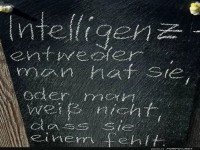 Intelligenz-
entweder
man hat sie,
oder man
weiß nicht,
dass sie
einem fehlt